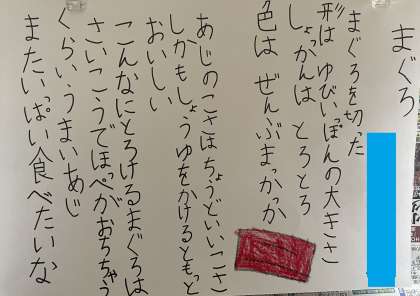 まぐろ
まぐろを切った
形は ゆびいっぽんの大きさ
しょっかんは とろとろ
色は ぜんぶまっかっか
あじのこさはちょうどいいこさ
しかもしょうゆをかけるともっと
おいしい
こんなにとろけるまぐろは
さいこうでほっぺがおちちゃう
くらいうまいあじ
またいっぱい食べたいな